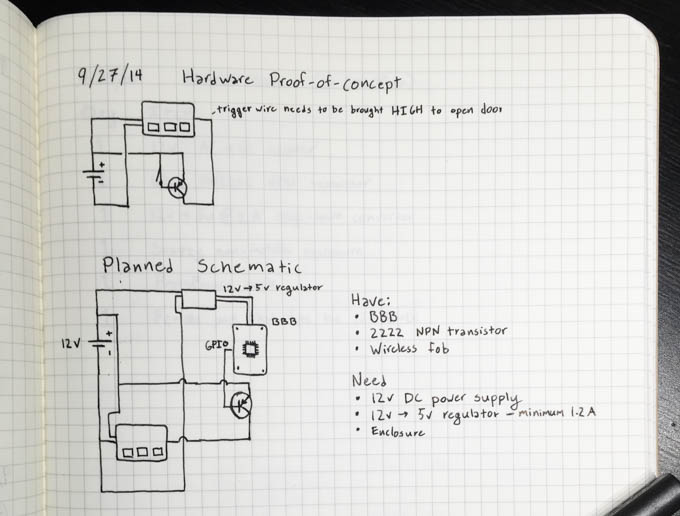 9/27/14 Hardware Proof-of-concept
trigger wire needs to be brought HIGH to open door
+
-
Planned Schematic
12v → 5v regulator
BBB
GPIO
12V
+
-
Have:
• BBB
• 2222 NPN transistor
• Wireless fob
Need
• 12v DC power supply
• 12v → 5v regulator - minimum 1.2A
• Enclosure